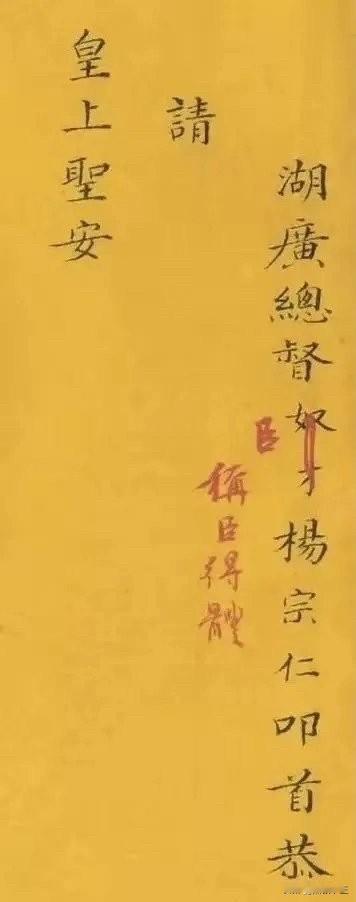 湖廣總督奴才楊宗仁叩首恭
臣
稱臣得體
請
皇上聖安